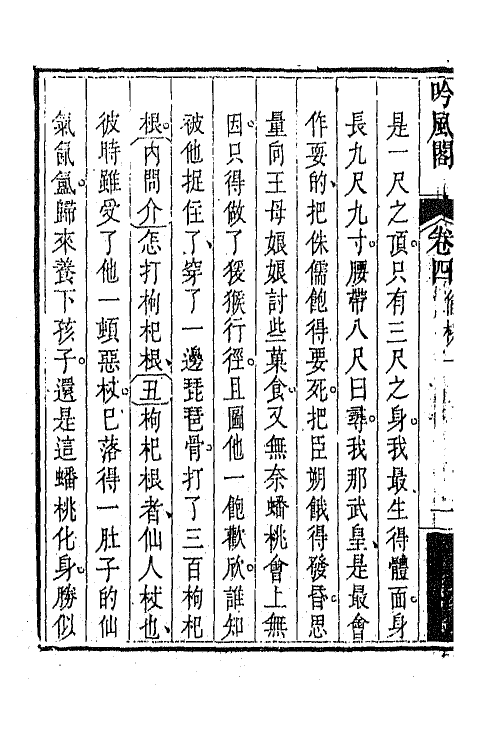 吟風閣 卷四
是一尺之頂。只有三尺之身。我最生得體面。身
長九尺九寸。腰帶八尺曰尋。我那武皇、是最會
作耍的、把侏儒飽得要死。把臣朔餓得發昏。思
量向王母娘娘討些菓食。又無奈蟠桃會上無
因。只得做了猴猴行徑。且圖他一飽歡欣。誰知
被他捉住了、穿了一邊琵琶骨。打了三百枸杞
根。內問介怎打枸杞根、丑枸杞根者、仙人杖也、
彼時雖受了他一頓惡杖。已落得一肚子的仙
氣氤氳。歸來養下孩子。還是這蟠桃化身。勝似